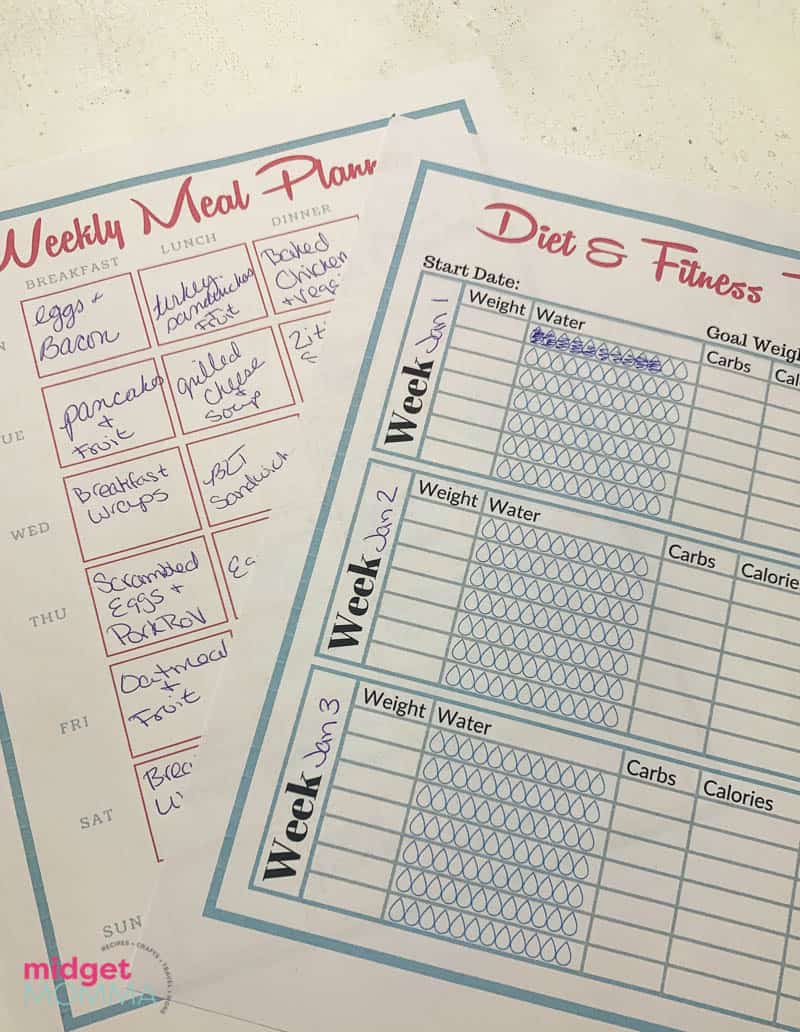 Weekly Meal Plann
BREAKFAST LUNCH DINNER
eggs +
Bacon
turkey
sandwiches
Fruit
Baked
Chicken
+ Vegg
TUE
pancakes
+
Fruit
grilled
Cheese
+
Soup
Ziti
WED
Breakfast
wraps
BLT
Sandwich
THU
Scrambled
Eggs +
Pork Roll
FRI
Oatmeal
+
Fruit
SAT
SUN
Diet & Fitness
Start Date:
Goal Weigh
Week Jan 1
Weight Water Carbs Cal
Week Jan 2
Weight Water Carbs Calorie
Week Jan 3
Weight Water Carbs Calories
RECIPES • CRAFTS • TRAVEL • MORE
midget
MOMMA